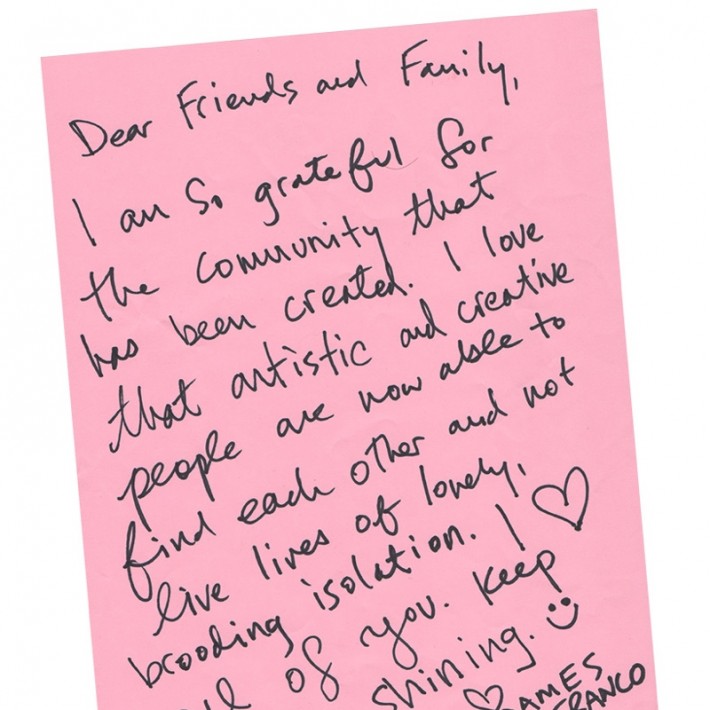 Dear Friends and Family,
I am so grateful for
the community that
has been created. I love
that artistic and creative
people are now able to
find each other and not
live lives of lonely,
brooding isolation. I ♡
all of you. Keep
shining. :)
♡ JAMES
FRANCO